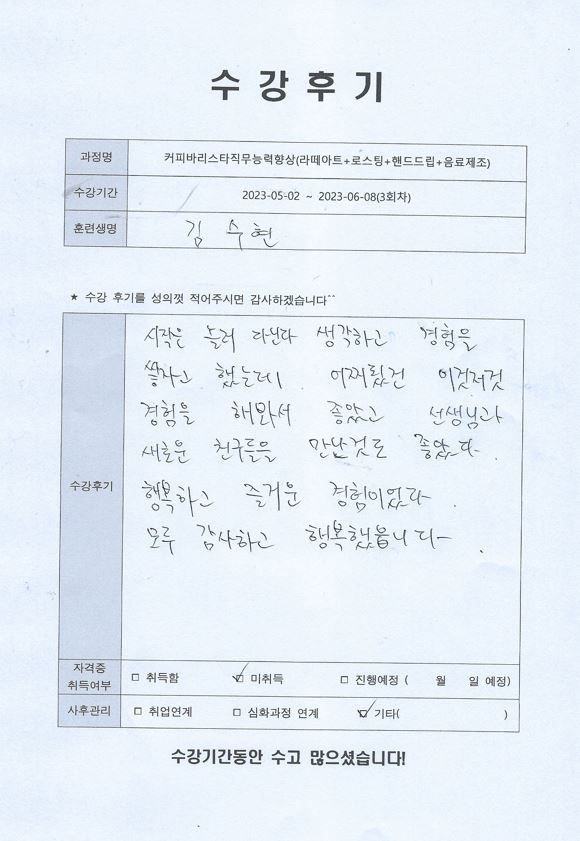 수강후기
과정명 커피바리스타직무능력향상(라떼아트+로스팅+핸드드립+음료제조)
수강기간 2023-05-02 ~ 2023-06-08(3회차)
훈련생명 김수현
★ 수강 후기를 성의껏 적어주시면 감사하겠습니다^^
시작은 놀러 다닌다 생각하고 경험을
쌓자고 했는데 어찌됐건 이것저것
경험을 해봐서 좋았고 선생님과
새로운 친구들을 만난것도 좋았다.
수강후기
행복하고 즐거운 경험이었다.
모두 감사하고 행복했읍니다.
자격증
취득여부 □ 취득함 ☑ 미취득 □ 진행예정 ( 월 일 예정)
사후관리 □ 취업연계 □ 심화과정 연계 ☑ 기타( )
수강기간동안 수고 많으셨습니다!